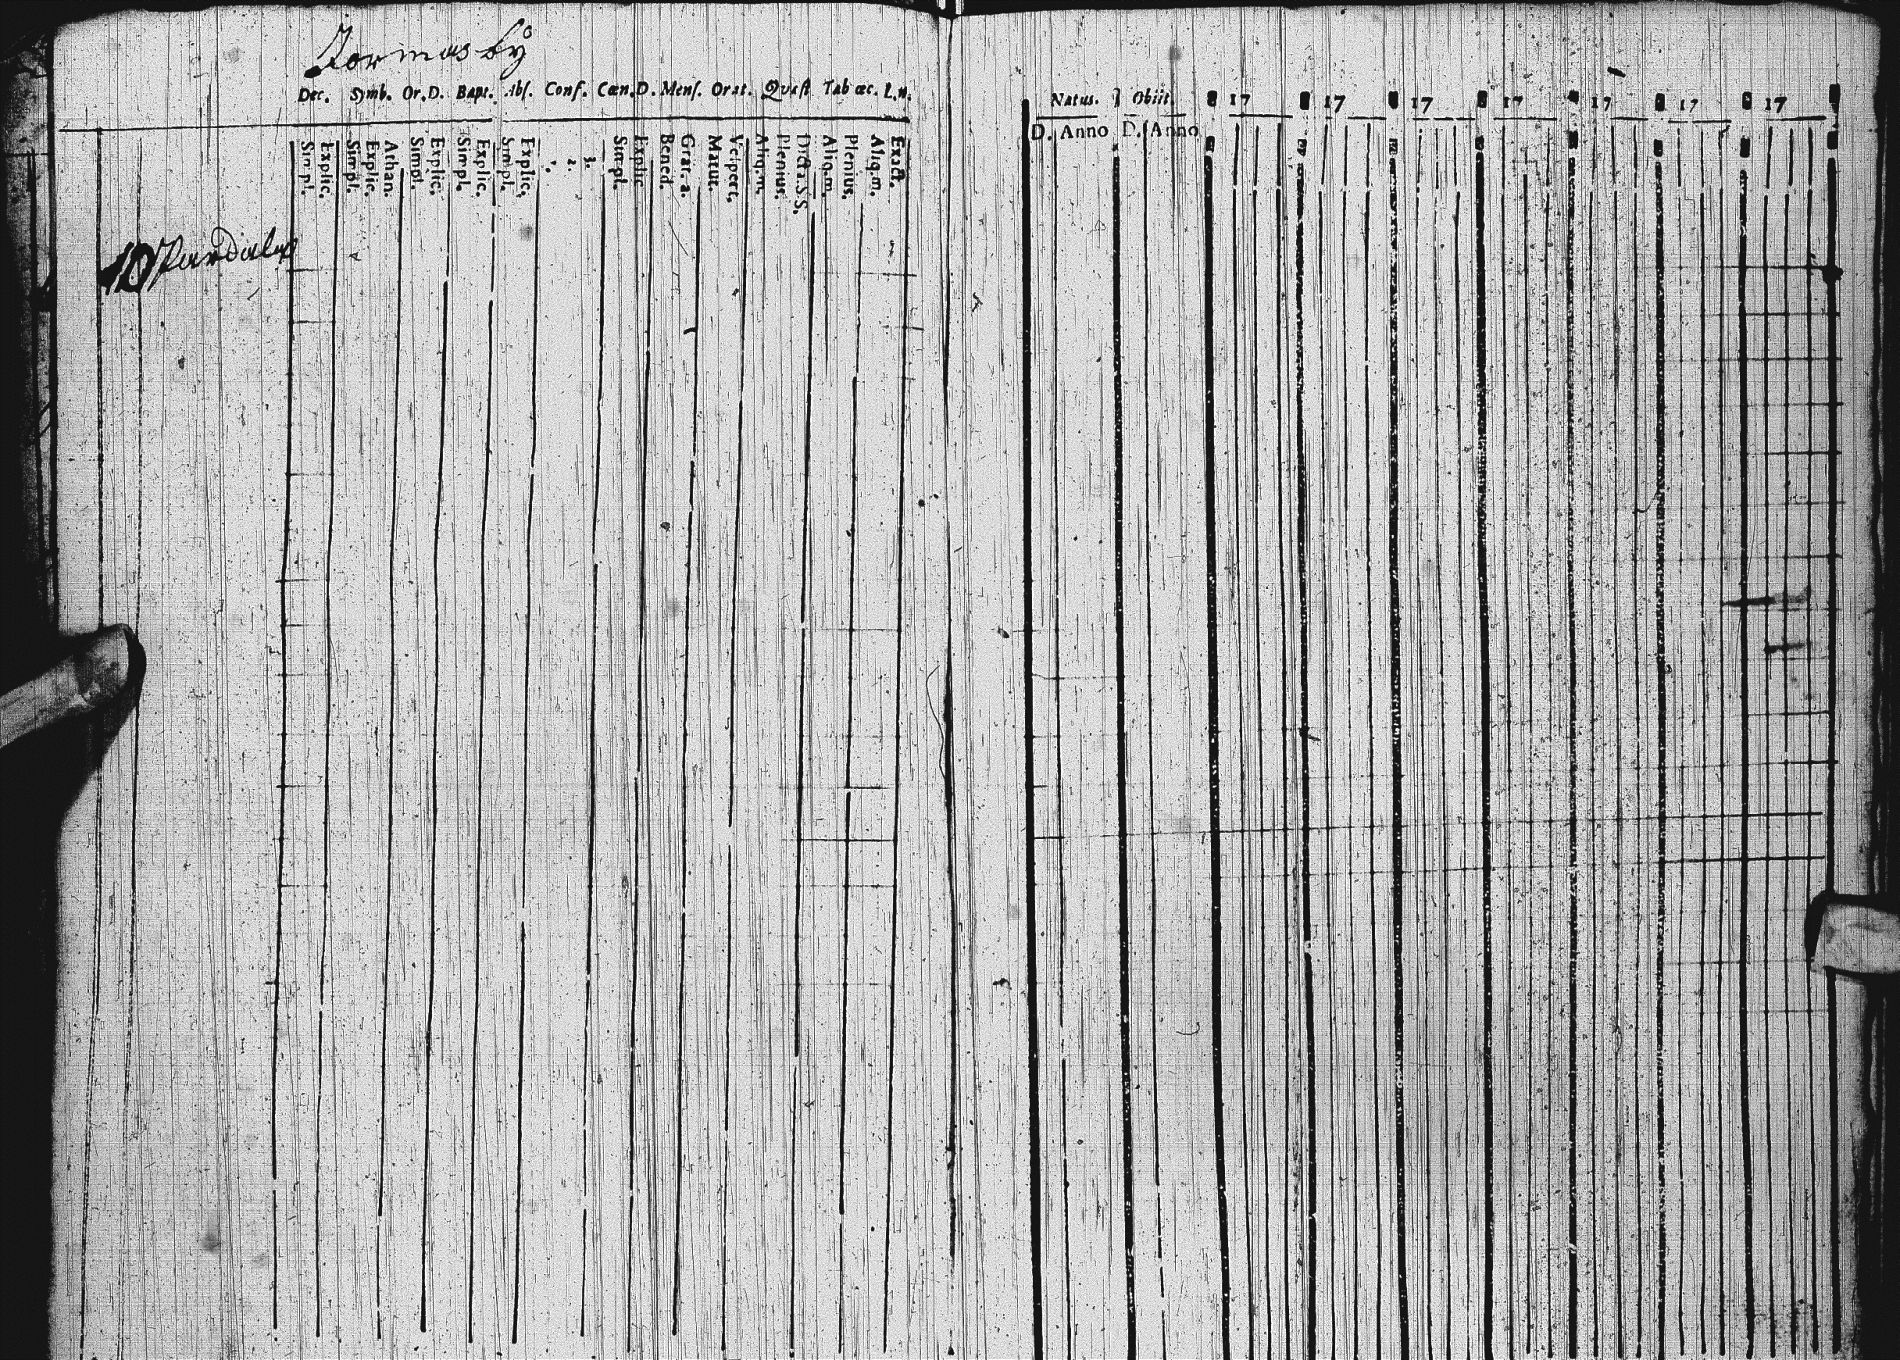 Tormasby
Dec. Symb. Or.D. Bapt. Abs. Conf. Cœn.D. Mens. Orat. Quæst Tab œc. L.n.
Natus. Obiit. 17 17 17 17 17 17 17
D. Anno D. Anno
Simpl. Explic. Simpl. Explic. Athan. Simpl. Explic. Simpl. Explic. Simpl. Explic. 1. 2. 3. Simpl. Explic Bened. Grat. a. Matut. Vespert. Aliq.m. Plenius. Dicta.S.S. Aliq.m. Plenius. Aliq.m. Exact.
10